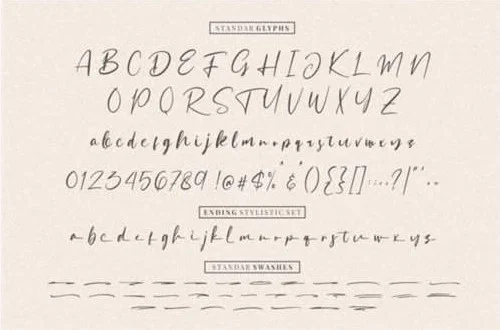 STANDAR GLYPHS
ABCDEFGHIJKLMN
OPQRSTUVWXYZ
abcdefghijklmnopqrstuvwxyz
0123456789 !@#$%^&*(){}[]:;,.?|"'
ENDING STYLISTIC SET
abcdefghijklmnopqrstuvwxyz
STANDAR SWASHES